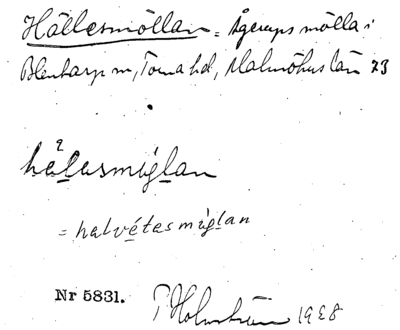 Hällesmöllan = Ågerups mölla i
Blentarp sn, Torna hd, Malmöhus län 73
hälasmíglan
= halvétas míglan
Nr 5831. P Holmström 1938